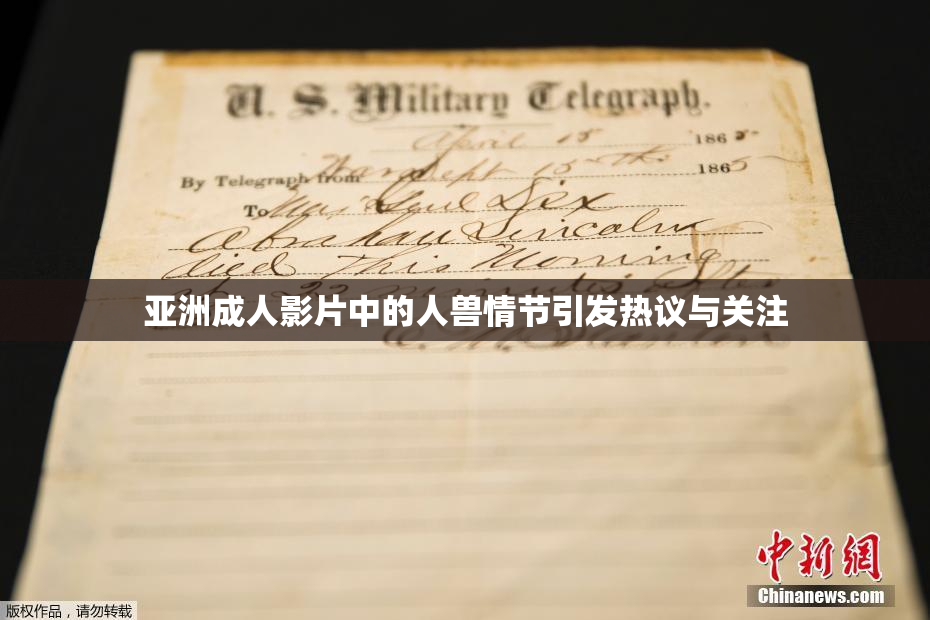 U. S. Military Telegraph.
April 15 1865
By Telegraph from War Dept 15th 1865
To Maj Genl Dix
Abraham Lincoln
died This Morning
at 22 minutes after
亚洲成人影片中的人兽情节引发热议与关注
E. M. Stanton
中新網
Chinanews.com
版权作品,请勿转载